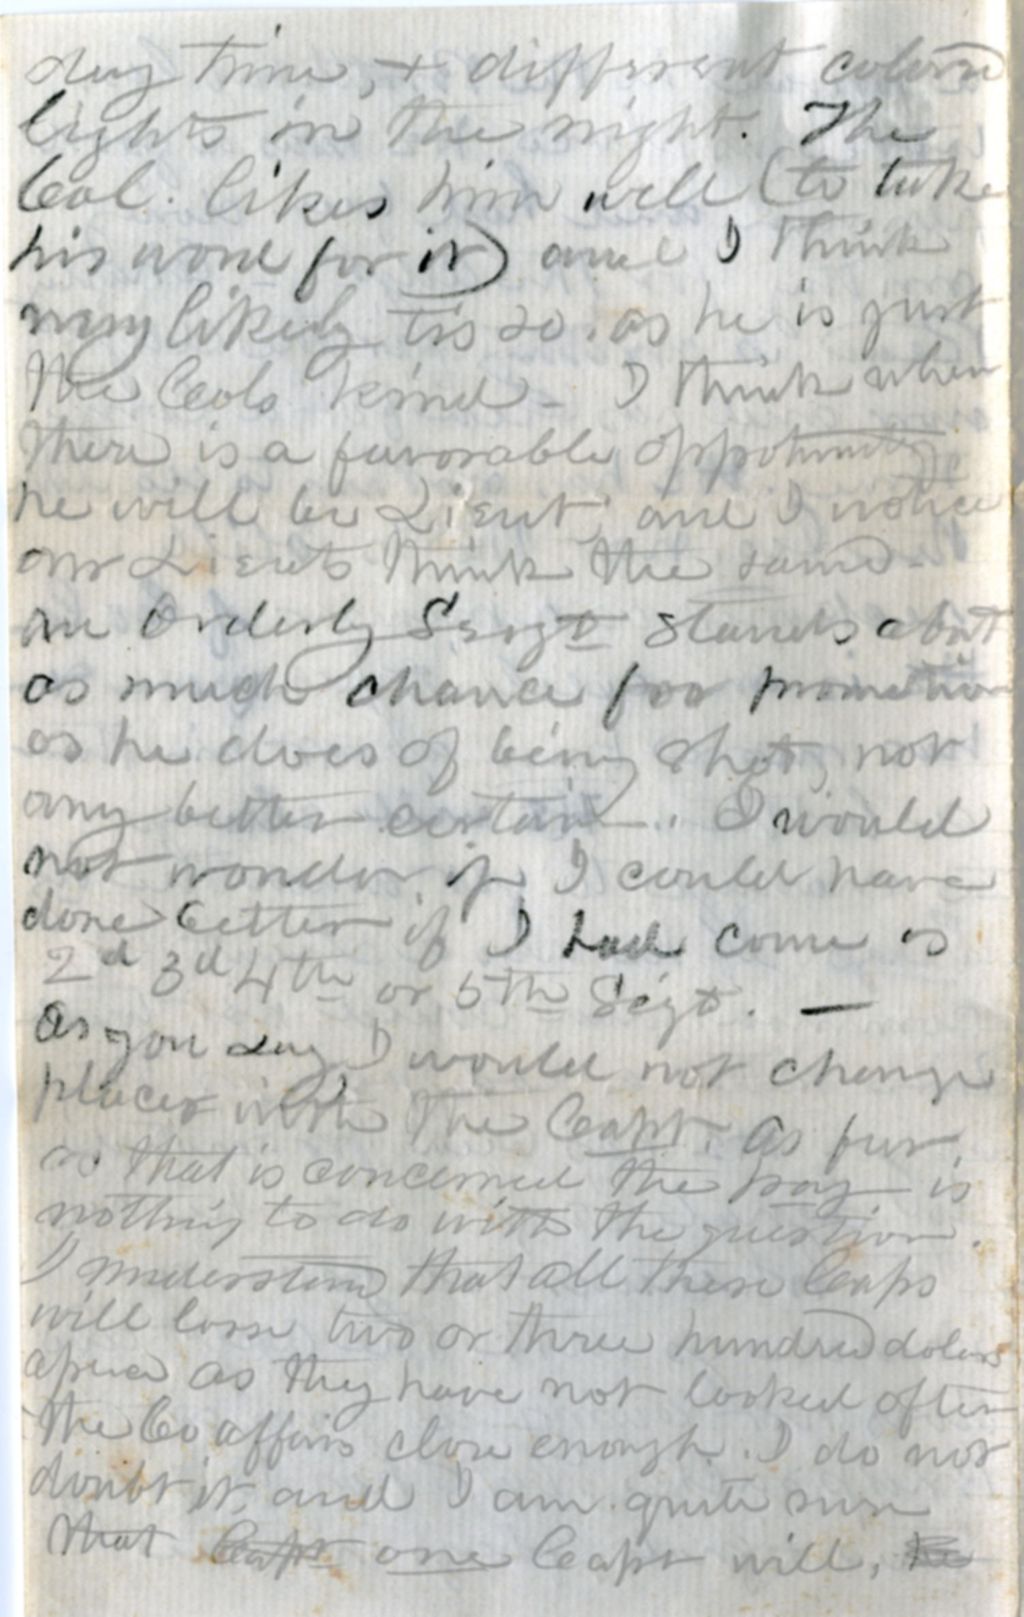 day time, + different colored
lights in the night. The
Col. likes him well (to take
his word for it) and I think
very likely tis so. as he is just
the Cols kind - I think when
there is a favorable oppotunity
he will be Lieut, and I notice
our Lieuts think the same -
an Orderly Sergt stands about
as much chance for promotion
as he does of being shot, not
any better certain. I would
not wonder if I could have
done better if I had come as
2d 3d 4th or 5th Segt. —
As you say I would not change
places with the Capt. as far,
as that is concerned the pay is
nothing to do with the question.
I understand that all these Caps
will lose two or three hundred dolars
apiece as they have not looked after
the Co affairs close enough. I do not
doubt it, and I am quite sure
that Capt one Capt will, He